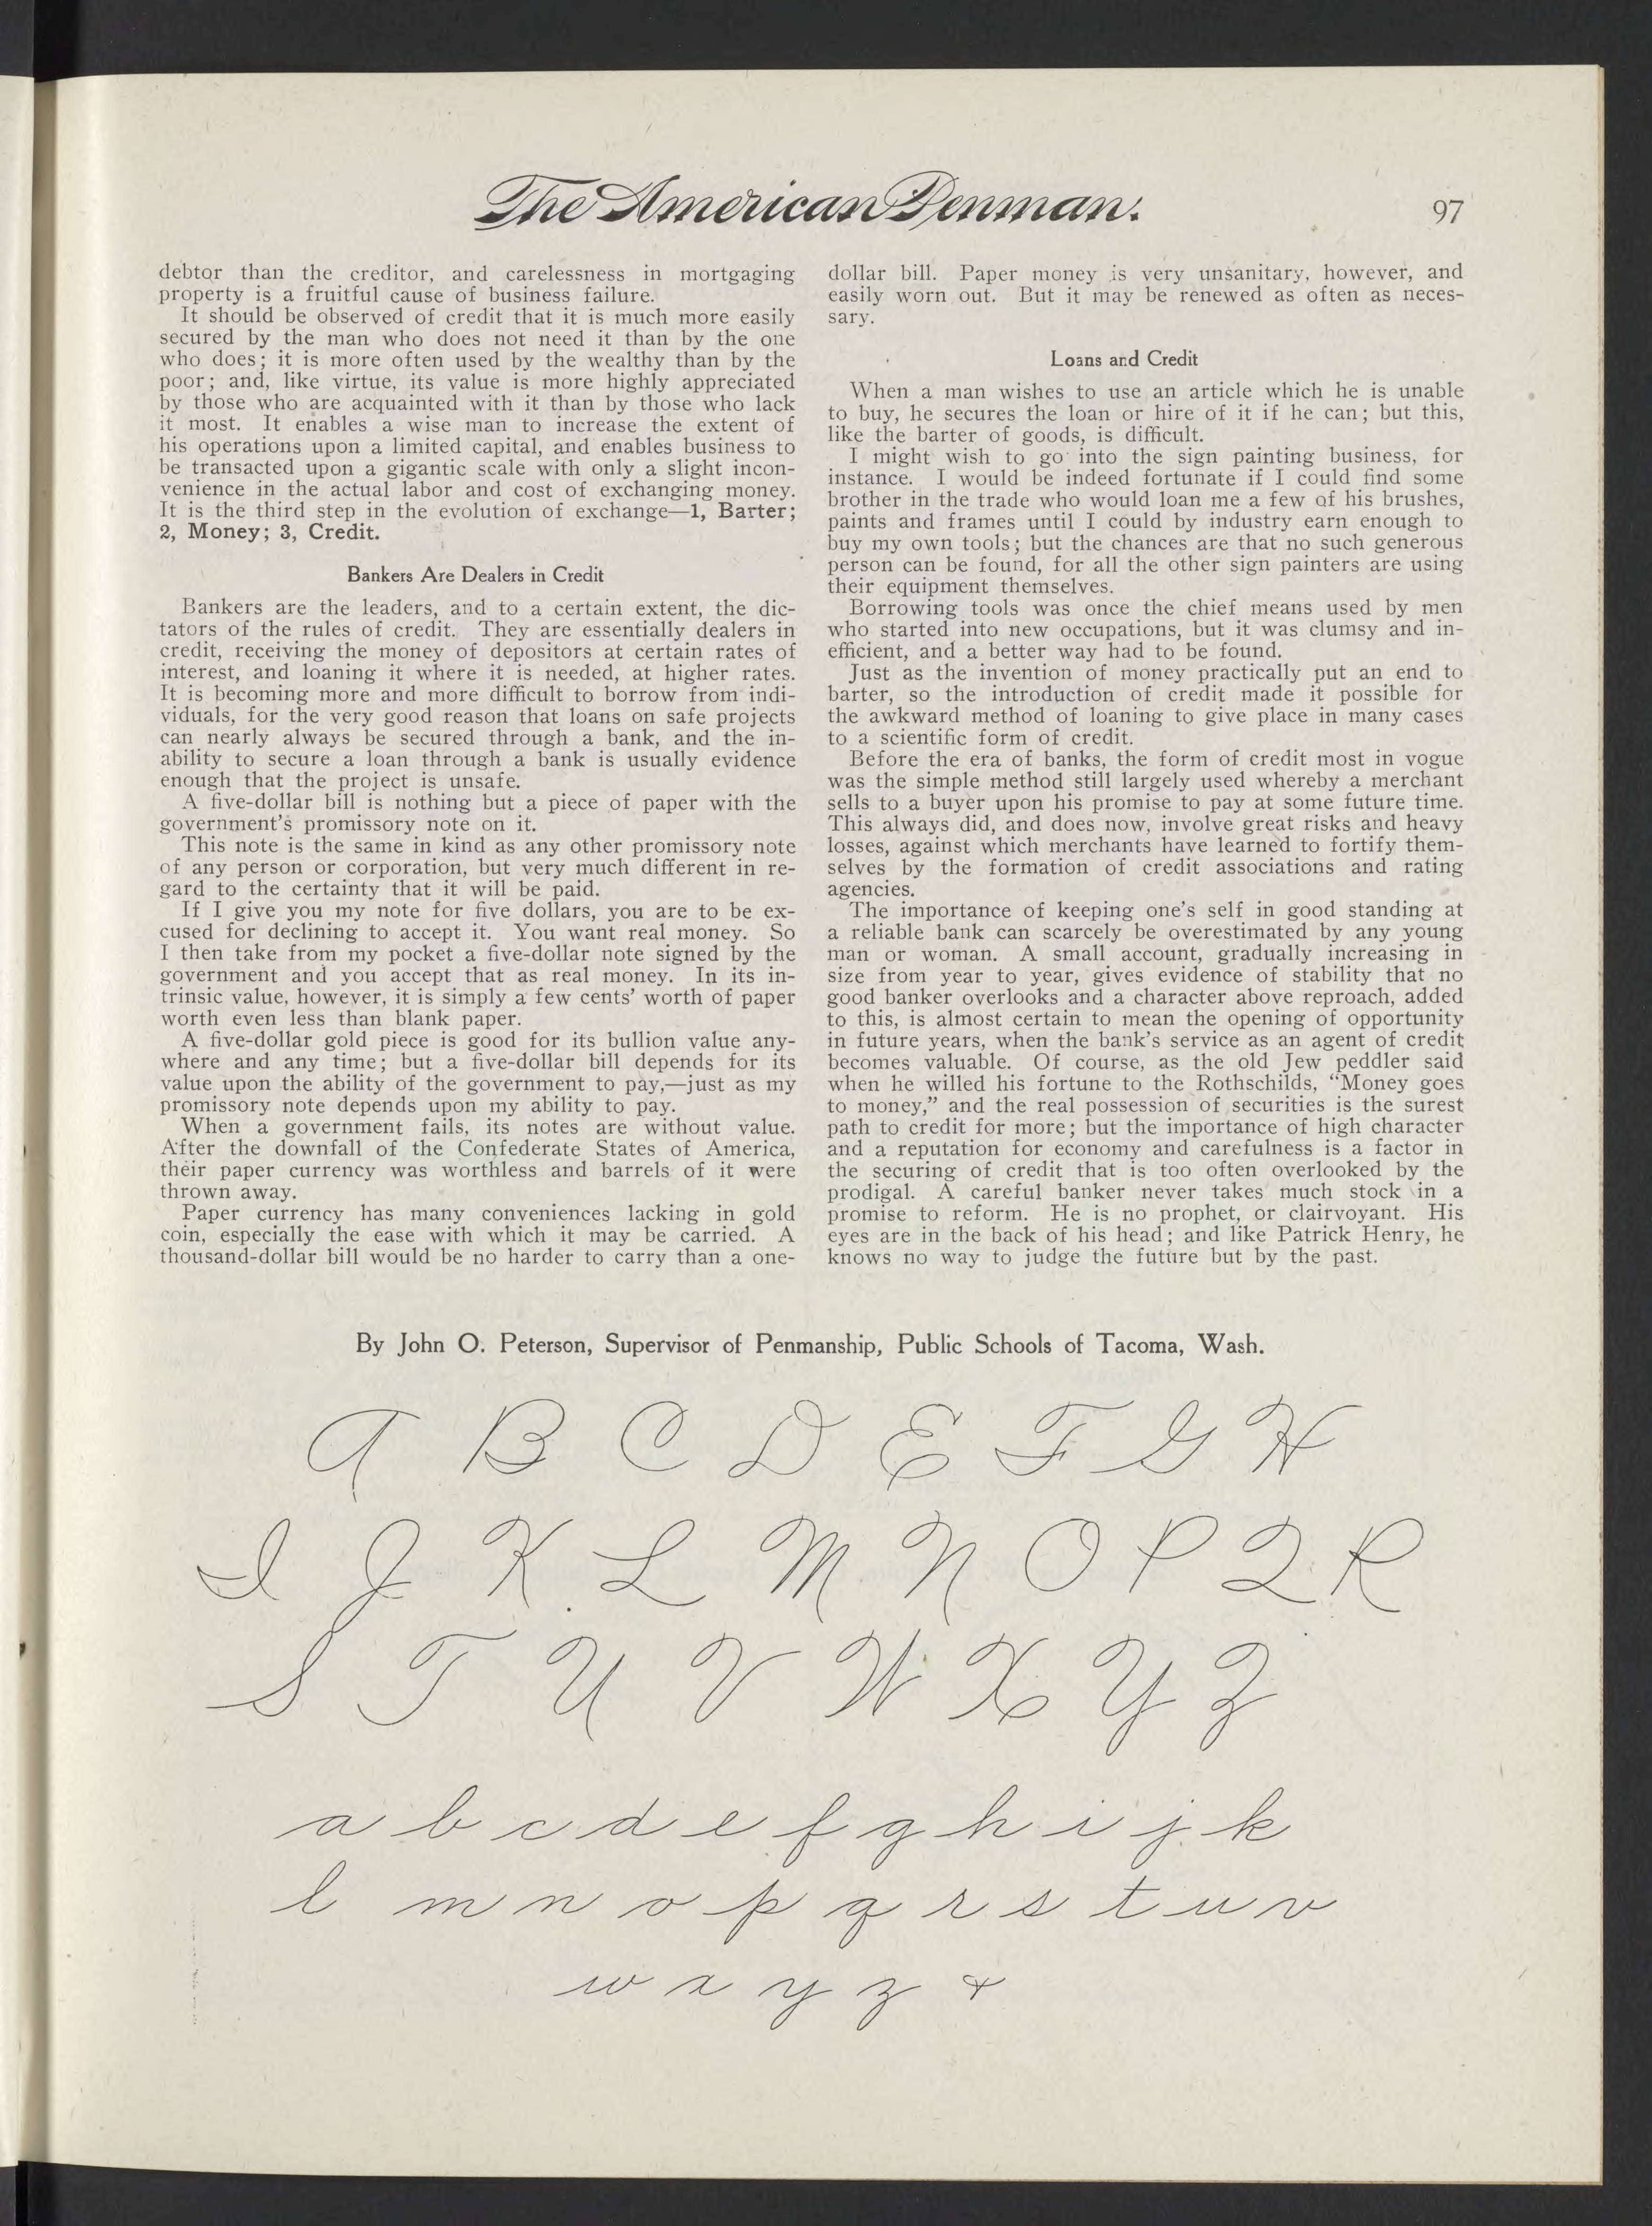 The American Penman.
97
debtor than the creditor, and carelessness in mortgaging
property is a fruitful cause of business failure.
It should be observed of credit that it is much more easily
secured by the man who does not need it than by the one
who does; it is more often used by the wealthy than by the
poor; and, like virtue, its value is more highly appreciated
by those who are acquainted with it than by those who lack
it most. It enables a wise man to increase the extent of
his operations upon a limited capital, and enables business to
be transacted upon a gigantic scale with only a slight incon-
venience in the actual labor and cost of exchanging money.
It is the third step in the evolution of exchange—1, Barter;
2, Money; 3, Credit.
Bankers Are Dealers in Credit
Bankers are the leaders, and to a certain extent, the dic-
tators of the rules of credit. They are essentially dealers in
credit, receiving the money of depositors at certain rates of
interest, and loaning it where it is needed, at higher rates.
It is becoming more and more difficult to borrow from indi-
viduals, for the very good reason that loans on safe projects
can nearly always be secured through a bank, and the in-
ability to secure a loan through a bank is usually evidence
enough that the project is unsafe.
A five-dollar bill is nothing but a piece of paper with the
government's promissory note on it.
This note is the same in kind as any other promissory note
of any person or corporation, but very much different in re-
gard to the certainty that it will be paid.
If I give you my note for five dollars, you are to be ex-
cused for declining to accept it. You want real money. So
I then take from my pocket a five-dollar note signed by the
government and you accept that as real money. In its in-
trinsic value, however, it is simply a few cents' worth of paper
worth even less than blank paper.
A five-dollar gold piece is good for its bullion value any-
where and any time; but a five-dollar bill depends for its
value upon the ability of the government to pay,—just as my
promissory note depends upon my ability to pay.
When a government fails, its notes are without value.
After the downfall of the Confederate States of America,
their paper currency was worthless and barrels of it were
thrown away.
Paper currency has many conveniences lacking in gold
coin, especially the ease with which it may be carried. A
thousand-dollar bill would be no harder to carry than a one-
dollar bill. Paper money is very unsanitary, however, and
easily worn out. But it may be renewed as often as neces-
sary.
Loans and Credit
When a man wishes to use an article which he is unable
to buy, he secures the loan or hire of it if he can; but this,
like the barter of goods, is difficult.
I might wish to go into the sign painting business, for
instance. I would be indeed fortunate if I could find some
brother in the trade who would loan me a few of his brushes,
paints and frames until I could by industry earn enough to
buy my own tools; but the chances are that no such generous
person can be found, for all the other sign painters are using
their equipment themselves.
Borrowing tools was once the chief means used by men
who started into new occupations, but it was clumsy and in-
efficient, and a better way had to be found.
Just as the invention of money practically put an end to
barter, so the introduction of credit made it possible for
the awkward method of loaning to give place in many cases
to a scientific form of credit.
Before the era of banks, the form of credit most in vogue
was the simple method still largely used whereby a merchant
sells to a buyer upon his promise to pay at some future time.
This always did, and does now, involve great risks and heavy
losses, against which merchants have learned to fortify them-
selves by the formation of credit associations and rating
agencies.
The importance of keeping one's self in good standing at
a reliable bank can scarcely be overestimated by any young
man or woman. A small account, gradually increasing in
size from year to year, gives evidence of stability that no
good banker overlooks and a character above reproach, added
to this, is almost certain to mean the opening of opportunity
in future years, when the bank's service as an agent of credit
becomes valuable. Of course, as the old Jew peddler said
when he willed his fortune to the Rothschilds, "Money goes
to money," and the real possession of securities is the surest
path to credit for more; but the importance of high character
and a reputation for economy and carefulness is a factor in
the securing of credit that is too often overlooked by the
prodigal. A careful banker never takes much stock in a
promise to reform. He is no prophet, or clairvoyant. His
eyes are in the back of his head; and like Patrick Henry, he
knows no way to judge the future but by the past.
By John O. Peterson, Supervisor of Penmanship, Public Schools of Tacoma, Wash.
A B C D E F G H
I J K L M N O P Q R
S T U V W X Y Z
a b c d e f g h i j k
l m n o p q r s t u v
w x y z &